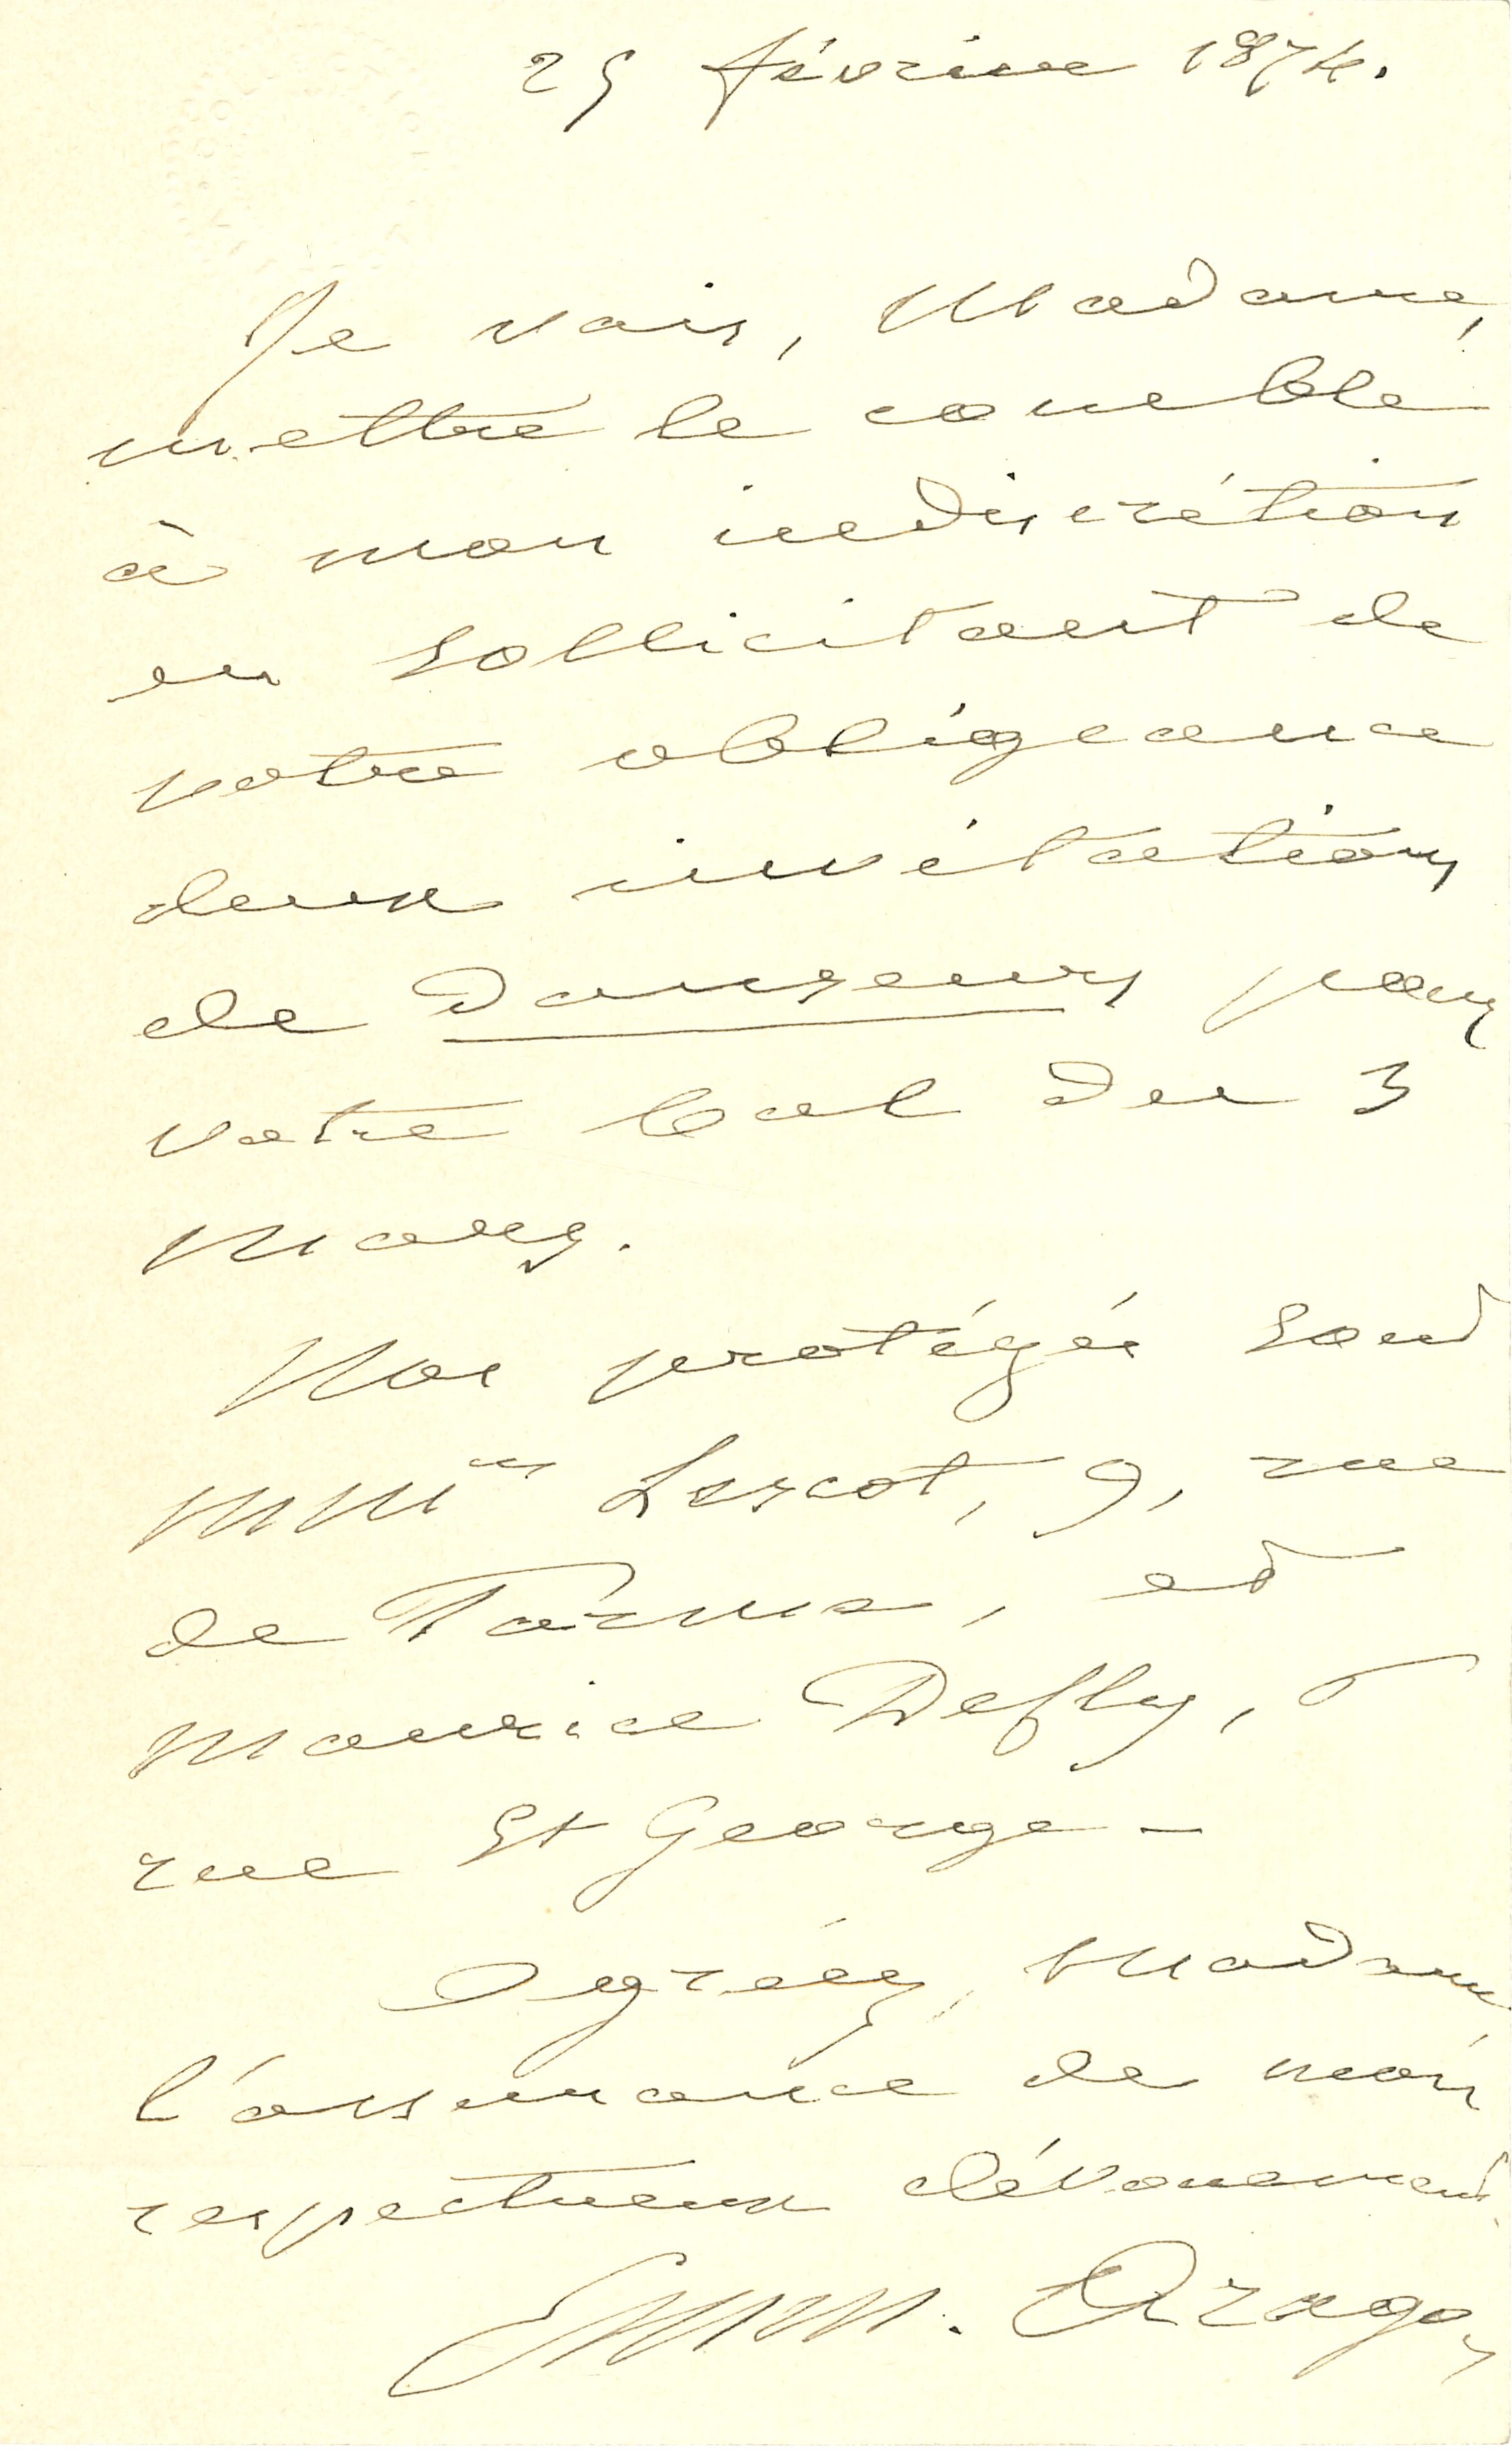 25 février 1874.
Je vais, Madame,
mettre le comble
à mon indiscrétion
en sollicitant de
votre obligeance
deux invitations
de danseurs pour
votre bal du 3
mars.
Mes protégés sont
MM Lescot, 9, rue
de Parme, et
Maurice Defly,
rue St George -
Agréez, Madame
l'assurance de mon
respectueux dévouement.
Emm. Arago